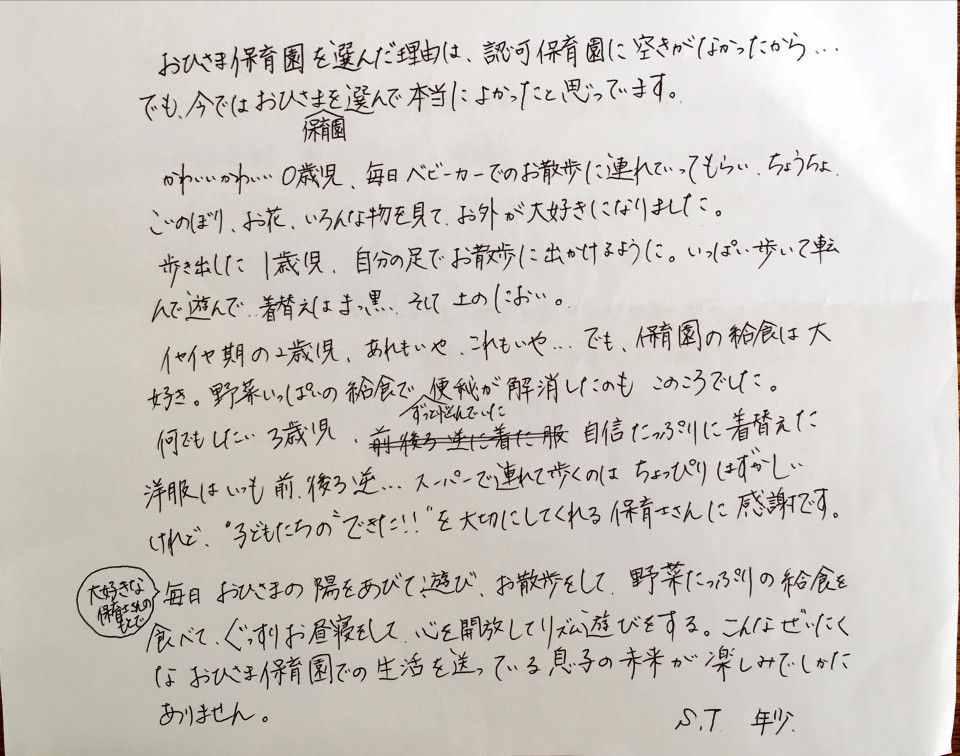 おひさま保育園を選んだ理由は、認可保育園に空きがなかったから…
でも、今ではおひさまを選んで本当によかったと思ってます。
保育園
かわいいかわいい0歳児、毎日ベビーカーでのお散歩に連れていってもらい、ちょうちょ、
こいのぼり、お花、いろんな物を見て、お外が大好きになりました。
歩き出した1歳児、自分の足でお散歩に出かけるように。いっぱい歩いて転
んで遊んで…着替えはまっ黒、そして土のにおい。
イヤイヤ期の2歳児、あれもいや、これもいや…でも、保育園の給食は大
好き。野菜いっぱいの給食で便秘が解消したのもこのころでした。
ずっと悩んでいた
何でもしたい3歳児、前後ろ逆に着た服 自信たっぷりに着替えた
洋服はいつも前、後ろ逆…スーパーで連れて歩くのはちょっぴりはずかしい
けれど、"子どもたちの"できた!!"を大切にしてくれる保育士さんに感謝です。
大好きな
保育士さんの
もとで
毎日おひさまの陽をあびて、遊び、お散歩をして、野菜たっぷりの給食を
食べて、ぐっすりお昼寝をして、心を開放してリズム遊びをする。こんなぜいたく
なおひさま保育園での生活を送っている息子の未来が楽しみでしかた
ありません。
S.T 年少